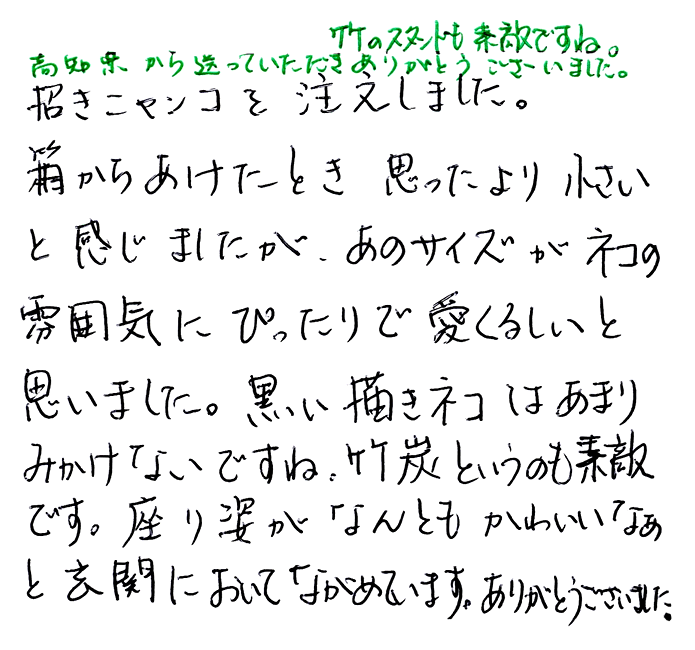 竹のスタンドも素敵ですね。
高知県から送っていただきありがとうございました。
招きニャンコを注文しました。
箱からあけたとき思ったより小さい
と感じましたが、あのサイズがネコの
雰囲気にぴったりで愛くるしいと
思いました。黒い描きネコはあまり
みかけないですね、竹炭というのも素敵
です。座り姿がなんともかわいいなぁ
と玄関においてながめています。ありがとうございました。